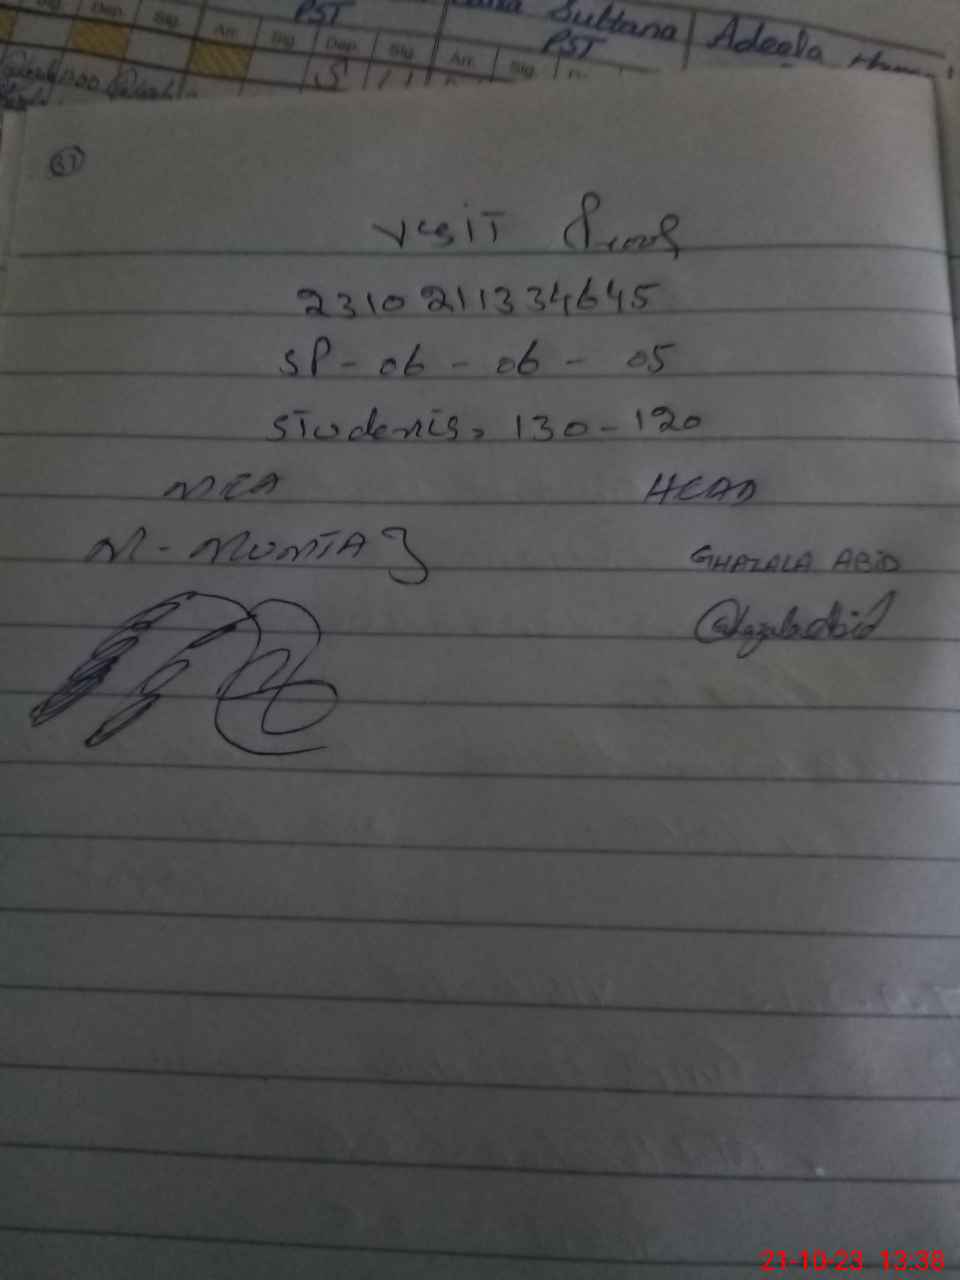 PST
Sultana
Adeela
PST
Dep.
Sig
Arr.
Sig
Dep.
Sig
Arr.
Sig
31
Visit Proof
2310211334645
SP - 06 - 06 - 05
Students, 130 - 120
MEA
HEAD
M - MUMTAZ
GHAZALA ABID
Ghazala abid
21-10-23 13:38